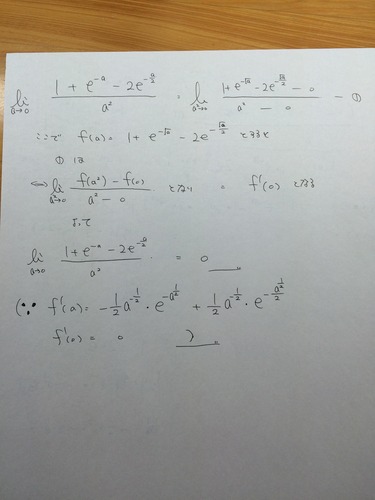 lim_{a→0} (1 + e^{-a} - 2e^{-a/2}) / a² = lim_{a²→0} (1 + e^{-√a} - 2e^{-√a/2} - 0) / (a² - 0) - ①
ここで f(a) = 1 + e^{-√a} - 2e^{-√a/2} とすると
① は
⇔ lim_{a²→0} (f(a²) - f(0)) / (a² - 0) となり = f'(0) となる
よって
lim_{a→0} (1 + e^{-a} - 2e^{-a/2}) / a² = 0
(∵ f'(a) = -1/2 a^{-1/2} · e^{-a^{1/2}} + 1/2 a^{-1/2} · e^{-a^{1/2}/2}
f'(0) = 0 )